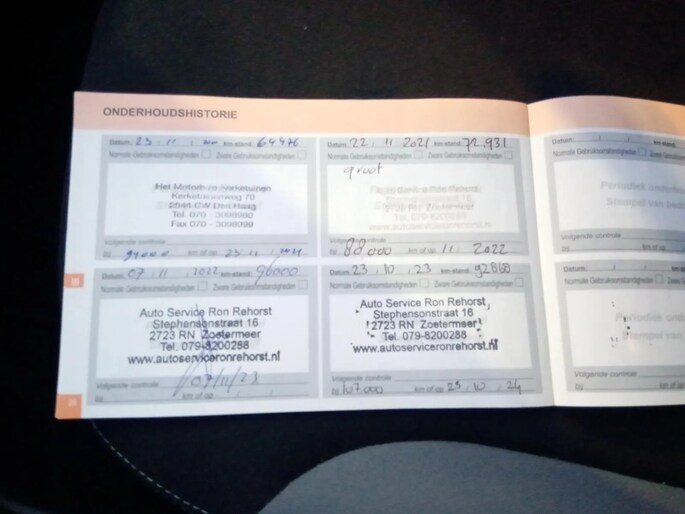 ONDERHOUDSHISTORIE
Datum: 23 . 11 . km-stand: 64476
Normale Gebruiksomstandigheden Zware Gebruiksomstandigheden
Kerketuinenweg 70
2544 CW Den Haag
Tel. 070 - 3098980
Fax 070 - 3098999
Volgende controle
km of op 23 11 2021
Datum: 22 . 11 2021 km-stand: 72.931
Normale Gebruiksomstandigheden Zware Gebruiksomstandigheden
groot
Auto Service Ron Rehorst
Stephensonstraat 16
2723 RN Zoetermeer
Tel. 079-8200288
www.autoserviceronrehorst.nl
Volgende controle
88000 km of op 11 . 2022
Datum:
Normale Gebruiksomstandigheden Zware Gebruiksomstandigheden
Volgende controle
Datum: 07 . 11 . 2022 km-stand: 96000
Normale Gebruiksomstandigheden Zware Gebruiksomstandigheden
Auto Service Ron Rehorst
Stephensonstraat 16
2723 RN Zoetermeer
Tel. 079-8200288
www.autoserviceronrehorst.nl
Volgende controle
bij km of op 07/11/23
Datum: 23 . 10 . 23 km-stand: 92868
Normale Gebruiksomstandigheden Zware Gebruiksomstandigheden
Auto Service Ron Rehorst
Stephensonstraat 16
2723 RN Zoetermeer
Tel. 079-8200288
www.autoserviceronrehorst.nl
Volgende controle
bij 107.000 km of op 23 . 10 . 24
Datum:
Normale Gebruiksomstandigheden
Volgende controle